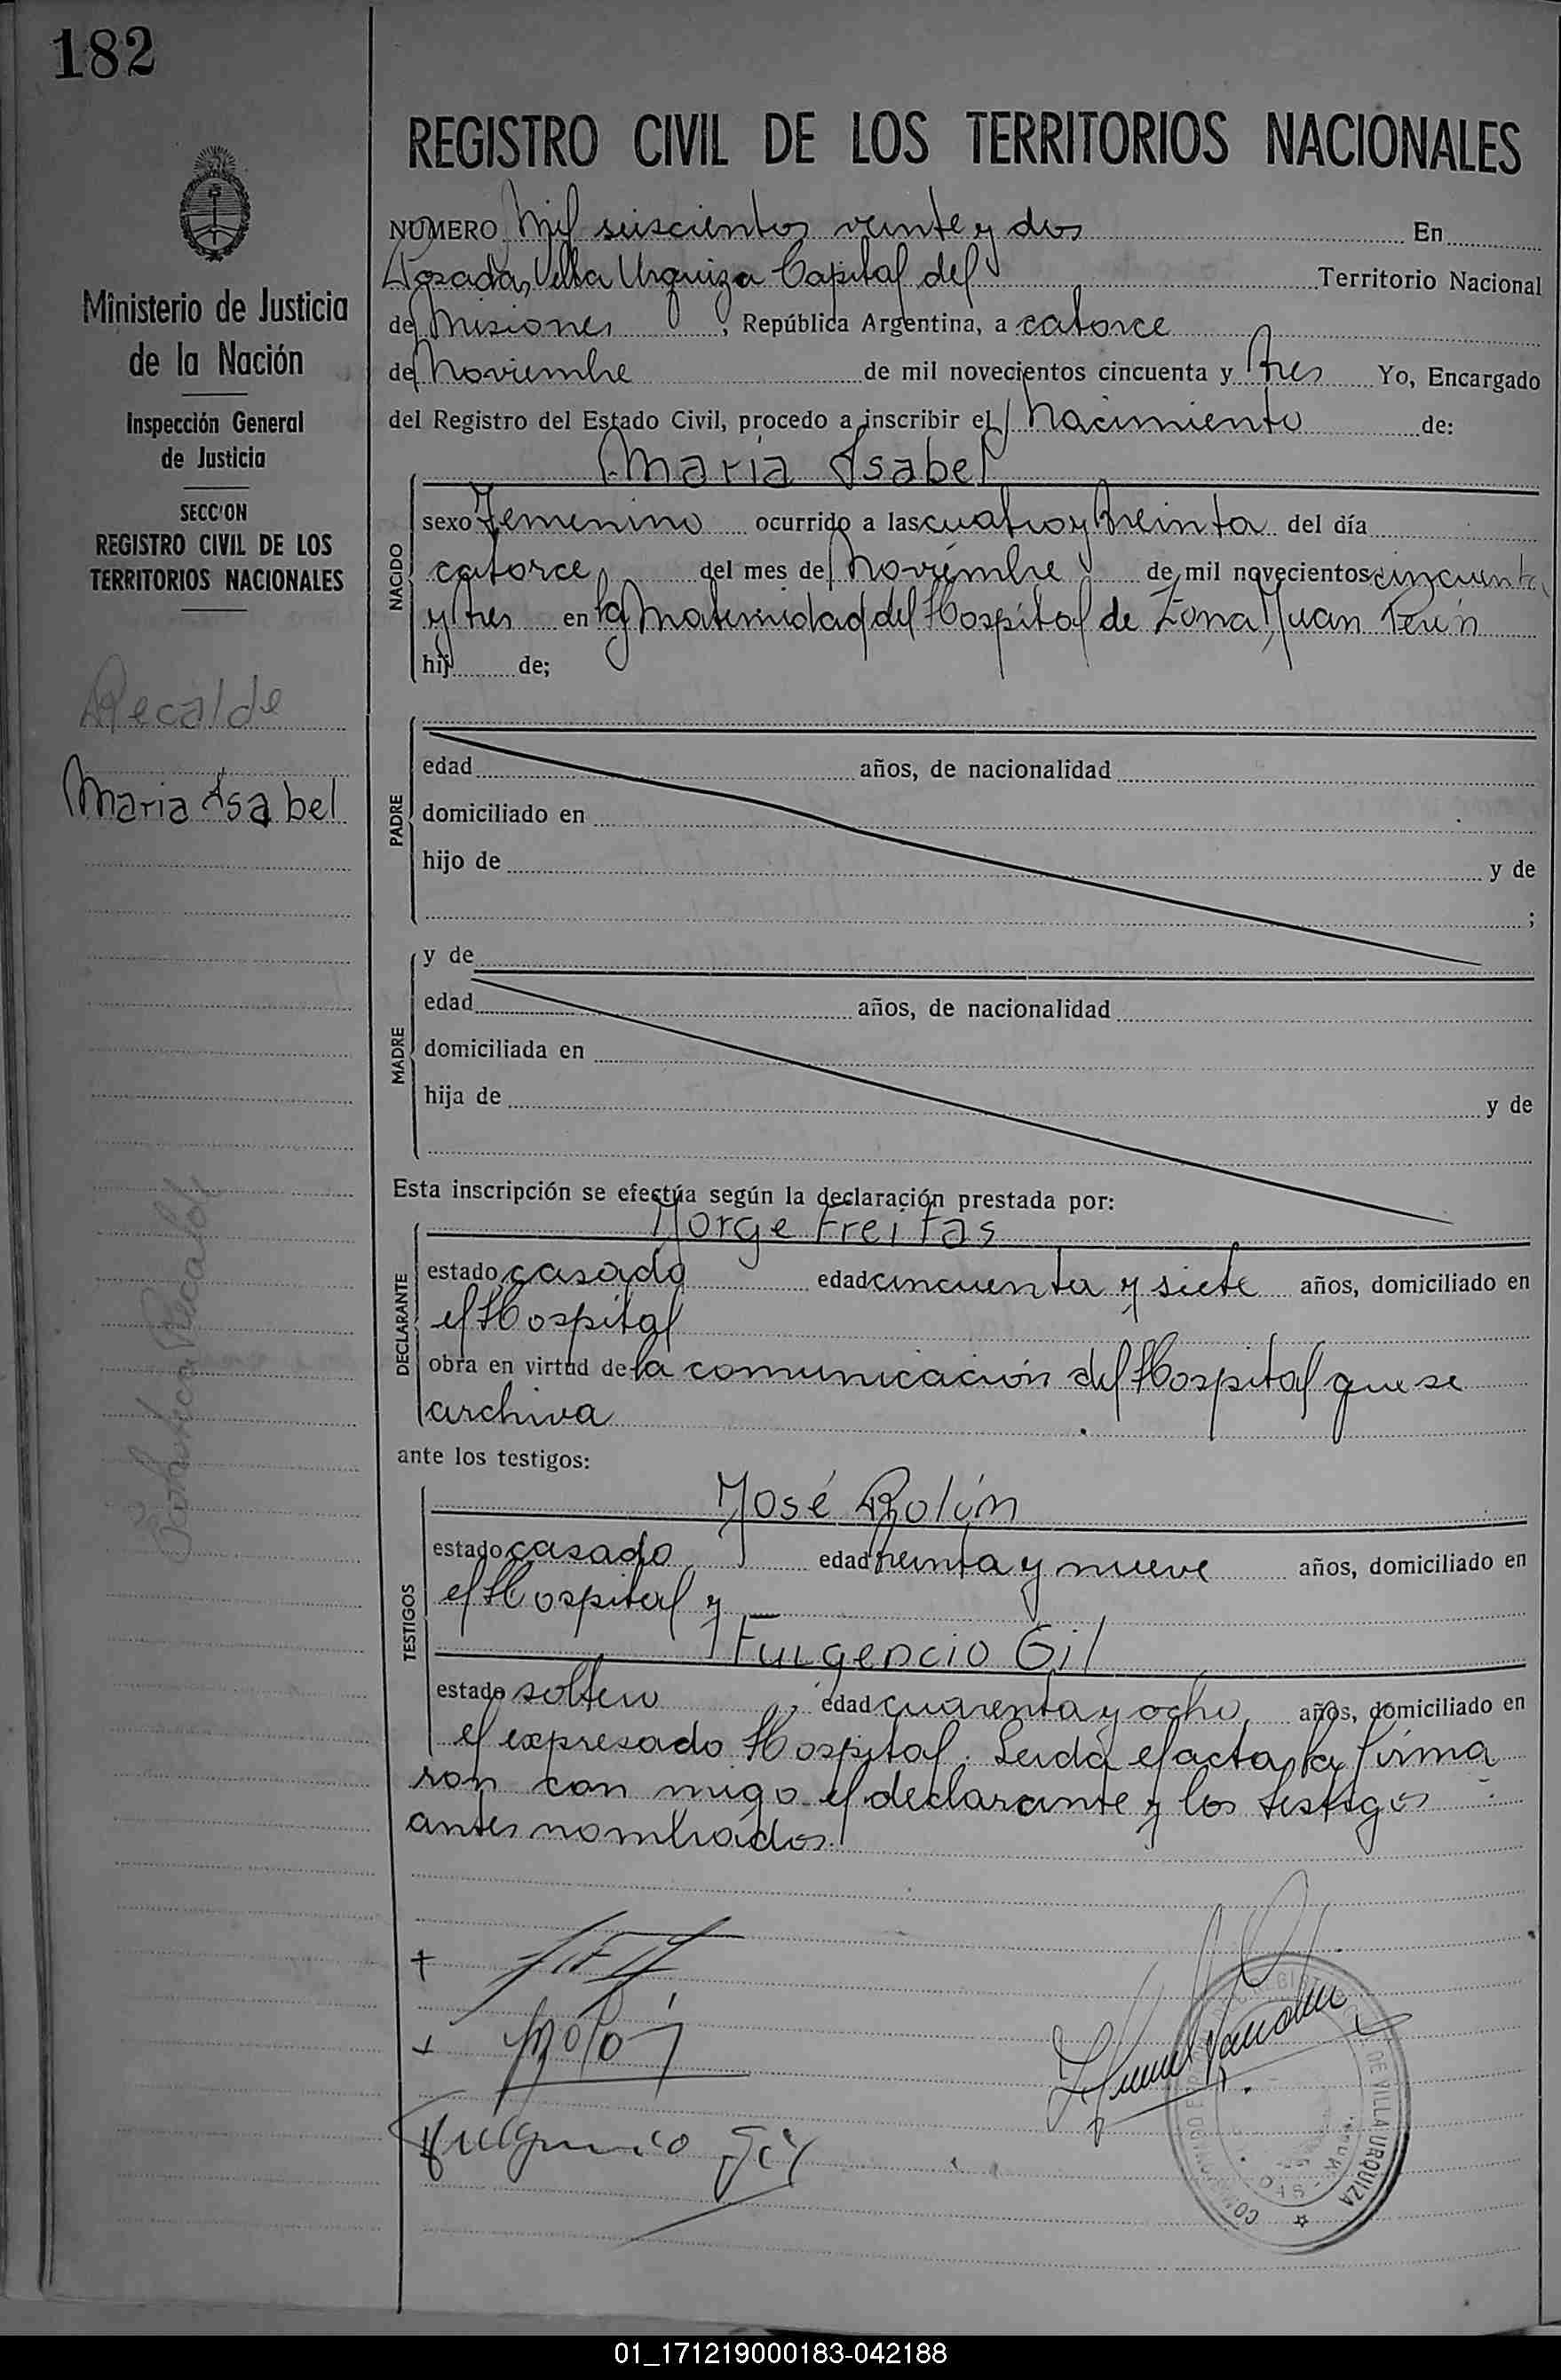 182
REGISTRO CIVIL DE LOS TERRITORIOS NACIONALES
Ministerio de Justicia
de la Nación
Inspección General
de Justicia
SECCION
REGISTRO CIVIL DE LOS
TERRITORIOS NACIONALES
Recalde
Maria Isabel
NUMERO Mil seiscientos veinte y dos En
Posadas, Villa Urquiza Capital del Territorio Nacional
de Misiones, República Argentina, a catorce
de Noviembre de mil novecientos cincuenta y tres Yo, Encargado
del Registro del Estado Civil, procedo a inscribir el Nacimiento de:
Maria Isabel
NACIDO
sexo Femenino ocurrido a las cuatro y treinta del día
catorce del mes de Noviembre de mil novecientos cincuenta
y tres en la Maternidad del Hospital de Zona Juan Perón
hij de;
PADRE
edad años, de nacionalidad
domiciliado en
hijo de y de
;
MADRE
y de
edad años, de nacionalidad
domiciliada en
hija de y de
Esta inscripción se efectúa según la declaración prestada por:
Jorge Freitas
DECLARANTE
estado casado edad cincuenta y siete años, domiciliado en
el Hospital
obra en virtud de la comunicación del Hospital que se
archiva
ante los testigos:
José Rolón
TESTIGOS
estado casado edad treinta y nueve años, domiciliado en
el Hospital y
Fulgencio Gil
estado soltero edad cuarenta y ocho años, domiciliado en
el expresado Hospital. Leida el acta, la firma
ron con migo el declarante y los testigos
antes nombrados.
Rolón
Fulgencio Gil
DE VILLA URQUIZA
01_171219000183-042188